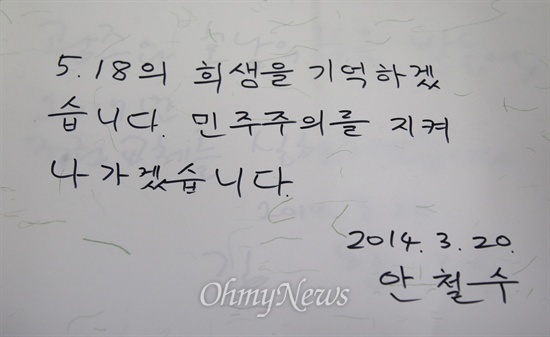 5.18의 희생을 기억하겠
습니다. 민주주의를 지켜
나가겠습니다.
2014. 3. 20.
안철수
OhmyNews